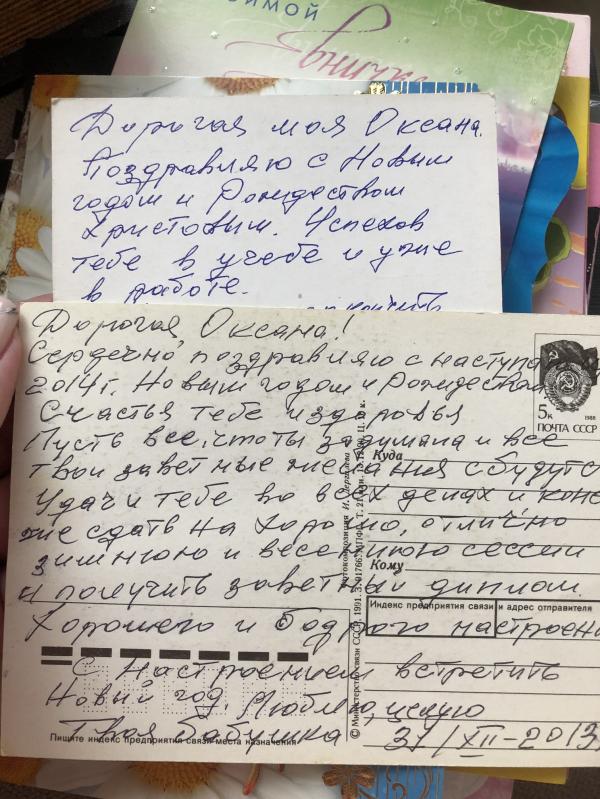 зимой
Дорогая моя Оксана.
Поздравляю с Новым
годом и Рождеством
Христовым. Успехов
тебе в учебе и уже
в работе.
Дорогая, Оксана!
Сердечно, поздравляю с наступа
2014 г. Новым годом и Рождеством
Счастья тебе и здоровья
Пусть все, что ты задумала и все
твои заветные желания сбудутс
Удачи тебе во всех делах и коне
же сдать на хорошо, отлично
зимнюю и весеннюю сессии
и получить заветный диплом.
Хорошего и бодрого настроени
С настроением встретить
Новый год. Люблю, целую
Твоя бабушка 31/XII-2013
5к
1988
ПОЧТА СССР
Куда
Кому
Индекс предприятия связи и адрес отправителя
Пишите индекс предприятия связи места назначения
© Министерство связи СССР. 1991.